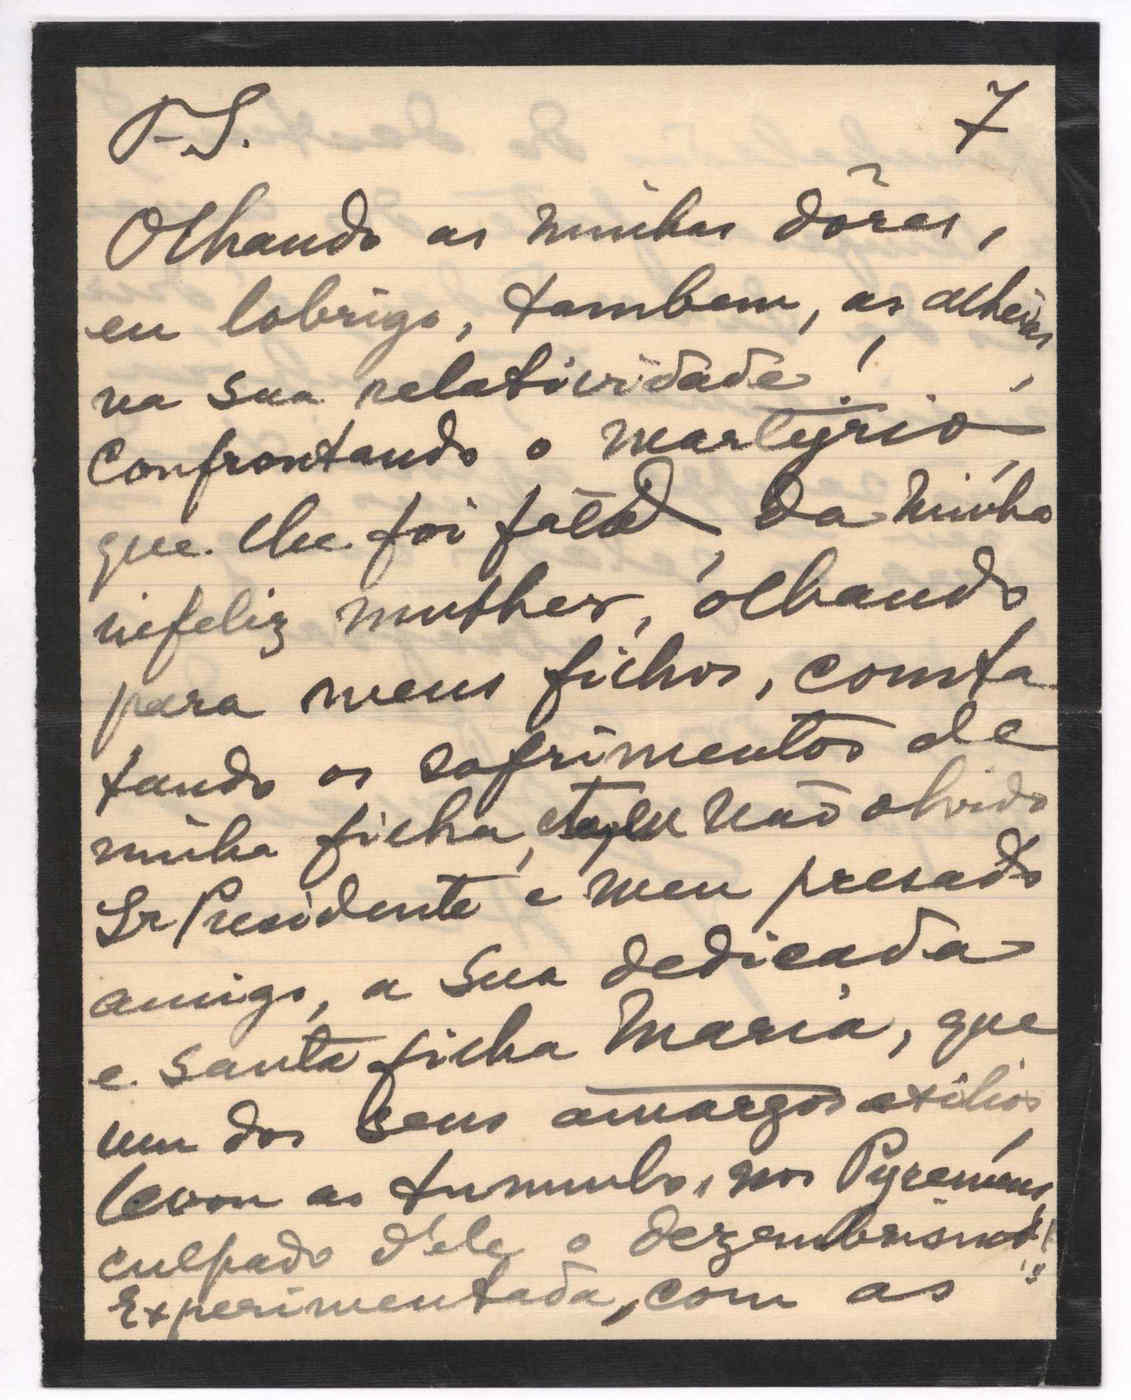 P.S. 7
Olhando as minhas dôres,
eu lobrigo, tambem, as alheias,
na sua relatividade!
Confrontando o martyrio,
que lhe foi fatal, da minha
infeliz mulher, olhando
para meus filhos, consta
tando os sofrimentos de
minha filha, não olvido
Sr Presidente e meu presado
amigo, a sua dedicada
e santa filha Maria, que
um dos seus amargos exilios
levou ao tumulo, nos Pyreneus,
culpado d'ele o dezembrismo!
Experimentada, com as